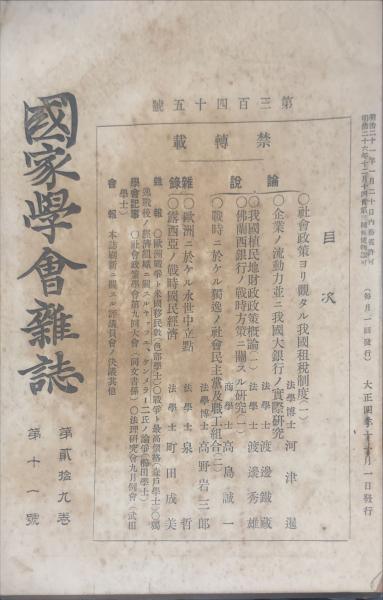 明治二十一年一月二十日內務省許可
大正四年十一月一日發行
(每月一回發行)
第三百四十五號
禁轉載
目次
論說
〇社會政策ヨリ觀タル我國租稅制度(一)
法學博士 河津暹
〇企業ノ流動力並ニ我國大銀行ノ實際研究
法學士 渡邊鐵藏
〇我國植民地財政政策槪論(二)
法學士 渡邊秀雄
〇佛蘭西銀行ノ戰時方策ニ關スル硏究(一)
商學士 高島誠一
〇戰時ニ於ケル獨逸ノ社會民主黨及職工組合(二)
法學博士 高野岩三郎
雜錄
〇歐洲ニ於ケル永世中立點
法學士 泉哲
〇露西亞ノ戰時國民經濟
法學士 町田成美
雜報
〇歐洲戰爭ト米國移民數(色部學士)〇戰爭ト最高價格(森戶學士)〇獨
逸戰後ノ經濟組織ニ關スル
二氏ノ論爭(櫛田學士)
學會記事
〇社會政策學會第九回大會(同文書係)〇法理硏究會九月例會
學士)
會報
本誌刷新ニ關スル評議員會ノ決議其他
國家學會雜誌
第貳拾九卷
第十一號